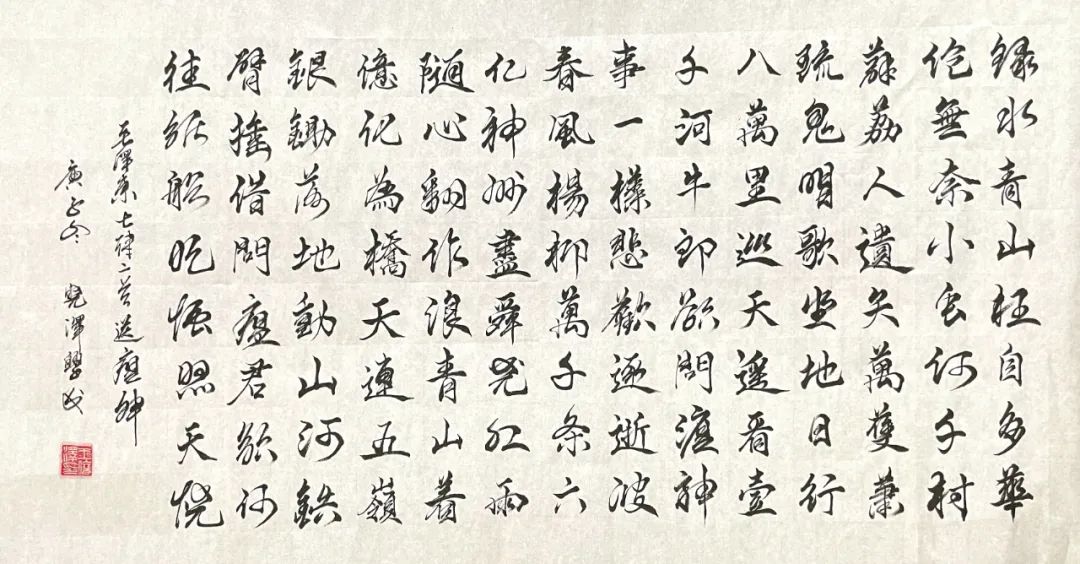 綠水青山枉自多華
佗無奈小虫何千村
薜荔人遺矢萬雙蕭
疏鬼唱歌坐地日行
八萬里巡天遥看壹
千河牛郎欲問瘟神
事一樣悲歡逐逝波
春風楊柳萬千條六
亿神州盡舜堯紅雨
隨心翻作浪青山着
億化為橋天連五嶺
銀鋤落地動山河鉄
臂摇借問瘟君欲何
往紙船明烛照天燒
毛澤東七律二首送瘟神
庚子冬 曉澤書